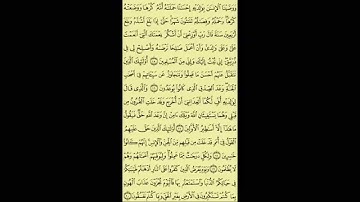 وَوَصَّيْنَا ٱلْإِنسَٰنَ بِوَٰلِدَيْهِ إِحْسَٰنًا حَمَلَتْهُ أُمُّهُۥ كُرْهًا وَوَضَعَتْهُ
كُرْهًا وَحَمْلُهُۥ وَفِصَٰلُهُۥ ثَلَٰثُونَ شَهْرًا حَتَّىٰٓ إِذَا بَلَغَ أَشُدَّهُۥ وَبَلَغَ
أَرْبَعِينَ سَنَةً قَالَ رَبِّ أَوْزِعْنِىٓ أَنْ أَشْكُرَ نِعْمَتَكَ ٱلَّتِىٓ أَنْعَمْتَ
عَلَىَّ وَعَلَىٰ وَٰلِدَىَّ وَأَنْ أَعْمَلَ صَٰلِحًا تَرْضَىٰهُ وَأَصْلِحْ لِى فِى
ذُرِّيَّتِىٓ إِنِّى تُبْتُ إِلَيْكَ وَإِنِّى مِنَ ٱلْمُسْلِمِينَ ١٥ أُو۟لَٰٓئِكَ ٱلَّذِينَ
نَتَقَبَّلُ عَنْهُمْ أَحْسَنَ مَا عَمِلُوا۟ وَنَتَجَاوَزُ عَن سَيِّـَٔاتِهِمْ فِىٓ أَصْحَٰبِ
ٱلْجَنَّةِ وَعْدَ ٱلصِّدْقِ ٱلَّذِى كَانُوا۟ يُوعَدُونَ ١٦ وَٱلَّذِى قَالَ
لِوَٰلِدَيْهِ أُفٍّ لَّكُمَآ أَتَعِدَانِنِىٓ أَنْ أُخْرَجَ وَقَدْ خَلَتِ ٱلْقُرُونُ مِن
قَبْلِى وَهُمَا يَسْتَغِيثَانِ ٱللَّهَ وَيْلَكَ ءَامِنْ إِنَّ وَعْدَ ٱللَّهِ حَقٌّ فَيَقُولُ
مَا هَٰذَآ إِلَّآ أَسَٰطِيرُ ٱلْأَوَّلِينَ ١٧ أُو۟لَٰٓئِكَ ٱلَّذِينَ حَقَّ عَلَيْهِمُ
ٱلْقَوْلُ فِىٓ أُمَمٍ قَدْ خَلَتْ مِن قَبْلِهِم مِّنَ ٱلْجِنِّ وَٱلْإِنسِ إِنَّهُمْ كَانُوا۟
خَٰسِرِينَ ١٨ وَلِكُلٍّ دَرَجَٰتٌ مِّمَّا عَمِلُوا۟ وَلِيُوَفِّيَهُمْ أَعْمَٰلَهُمْ وَهُمْ
لَا يُظْلَمُونَ ١٩ وَيَوْمَ يُعْرَضُ ٱلَّذِينَ كَفَرُوا۟ عَلَى ٱلنَّارِ أَذْهَبْتُمْ طَيِّبَٰتِكُمْ
فِى حَيَاتِكُمُ ٱلدُّنْيَا وَٱسْتَمْتَعْتُم بِهَا فَٱلْيَوْمَ تُجْزَوْنَ عَذَابَ ٱلْهُونِ
بِمَا كُنتُمْ تَسْتَكْبِرُونَ فِى ٱلْأَرْضِ بِغَيْرِ ٱلْحَقِّ وَبِمَا كُنتُمْ تَفْسُقُونَ ٢٠